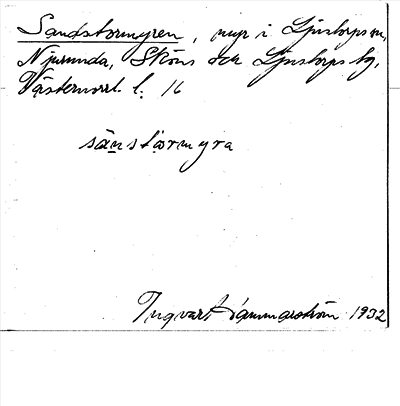 Sandstormyren, myr i Ljustorps sn,
Njurunda, Sköns och Ljustorps tg,
Västernorrl. l. 16
sänstormyra
Ingvar Hammarström 1932